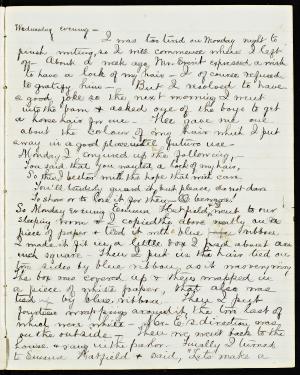 Wednesday evening –
I was too tired on Monday night to
finish writing, so I will commence where I left
off – About a week ago, Mr. expressed a wish
to have a lock of my hair – I of course refused
to gratify him – But I resolved to have
a good joke so the next morning I went
into the barn & asked one of the boys to get
a horse hair for me – He gave me one
about the colour of my hair which I put
away in a good place until future use –
Monday I conjured up the following –
You said that you wanted a lock of my hair,
So this I set with the hope that with care
You'll tenderly guard it, but please, do not dare
To show or to lose it for they
So Monday evening Emma Hatfield went to our
sleeping room & copied the above neatly on a
piece of paper & tied it with blue ribbon
I made it fit in a little box I had about an
inch square – Then I put in the hair tied on
two sides by blue ribbon, as it was very
the box was covered up & then wrapped in
a piece of white paper, that also was
tied by blue ribbon. Then I put
fourteen wrappings around it the ten last of
which were white – Mr. E's direction was
on the outside – Then we went back to the
house & sang in the parlor. Finally I turned
to Emma Hatfield & said, "I've to make a